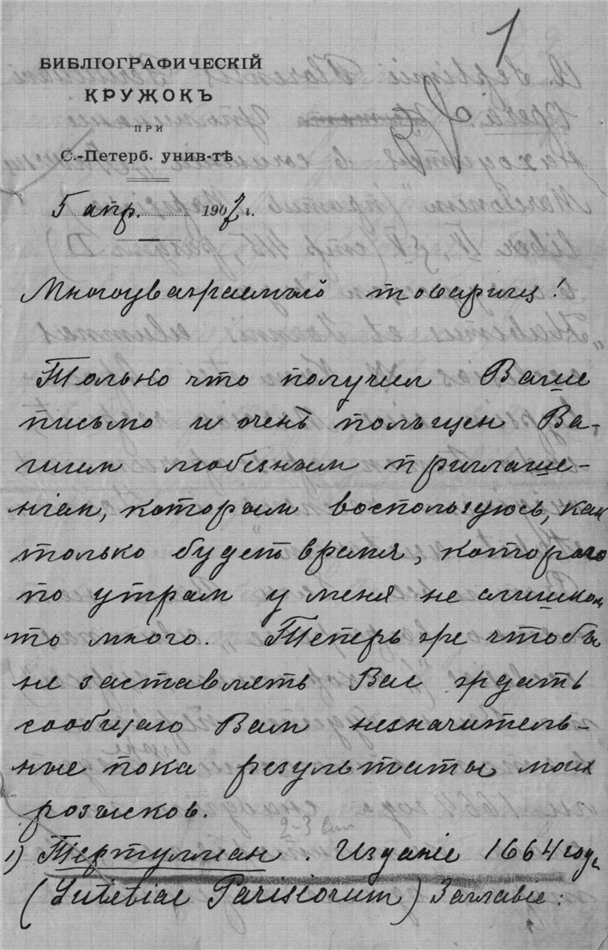 1
БИБЛІОГРАФИЧЕСКІЙ
КРУЖОКЪ
ПРИ
С.-Петерб. унив-тѣ
5 апр. 1907 г.
Многоуважаемый товарищ!
Только что получил Ваше
письмо и очень польщен Ва-
шим любезным приглаше-
ніем, которым воспользуюсь, как
только будет время, которого
по утрам у меня не слишком
то много. Теперь же чтобы
не заставлять Вас ждать
сообщаю Вам незначитель-
ные пока результаты моих
розысков.
1) Тертуллиан. Изданіе 1664 года
(Lutetiae Parisiorum) Заглавіе: